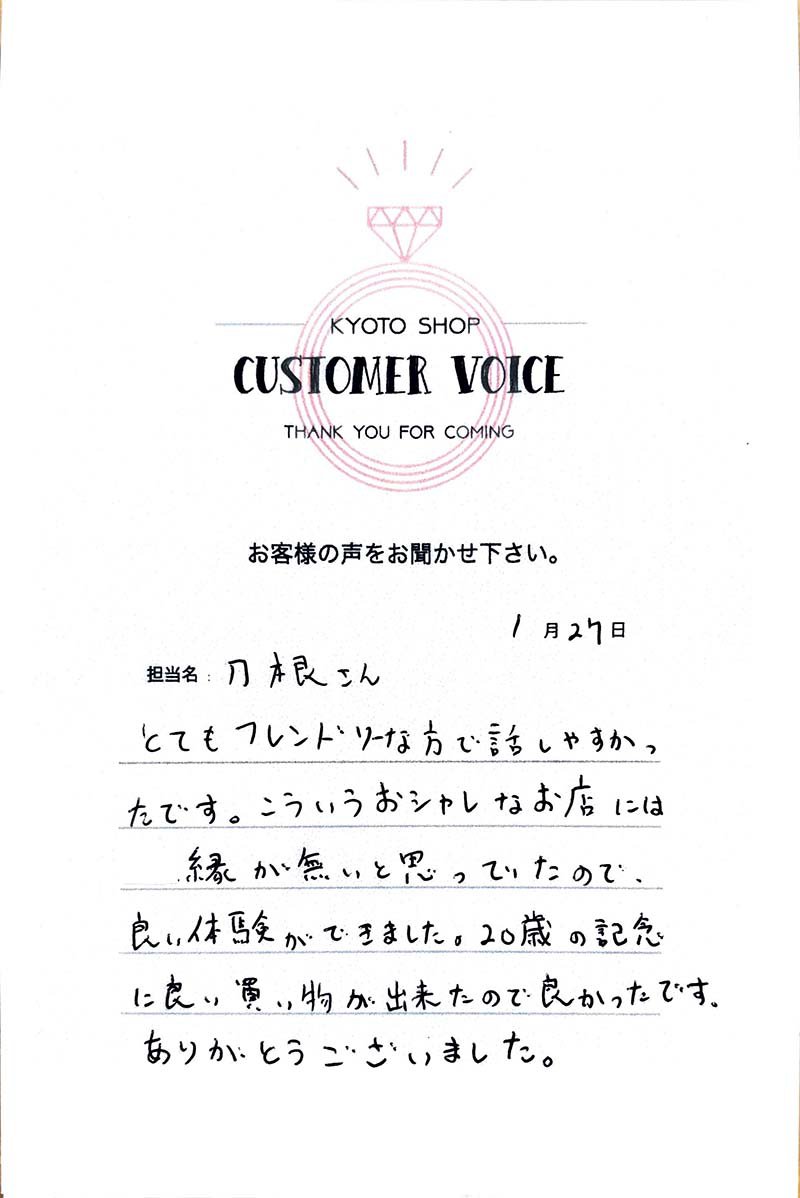 KYOTO SHOP
CUSTOMER VOICE
THANK YOU FOR COMING
お客様の声をお聞かせ下さい。
1月27日
担当名: 刀根さん
とてもフレンドリーな方で話しやすかっ
たです。こういうおシャレなお店には
縁が無いと思っていたので、
良い体験ができました。20歳の記念
に良い買い物が出来たので良かったです。
ありがとうございました。